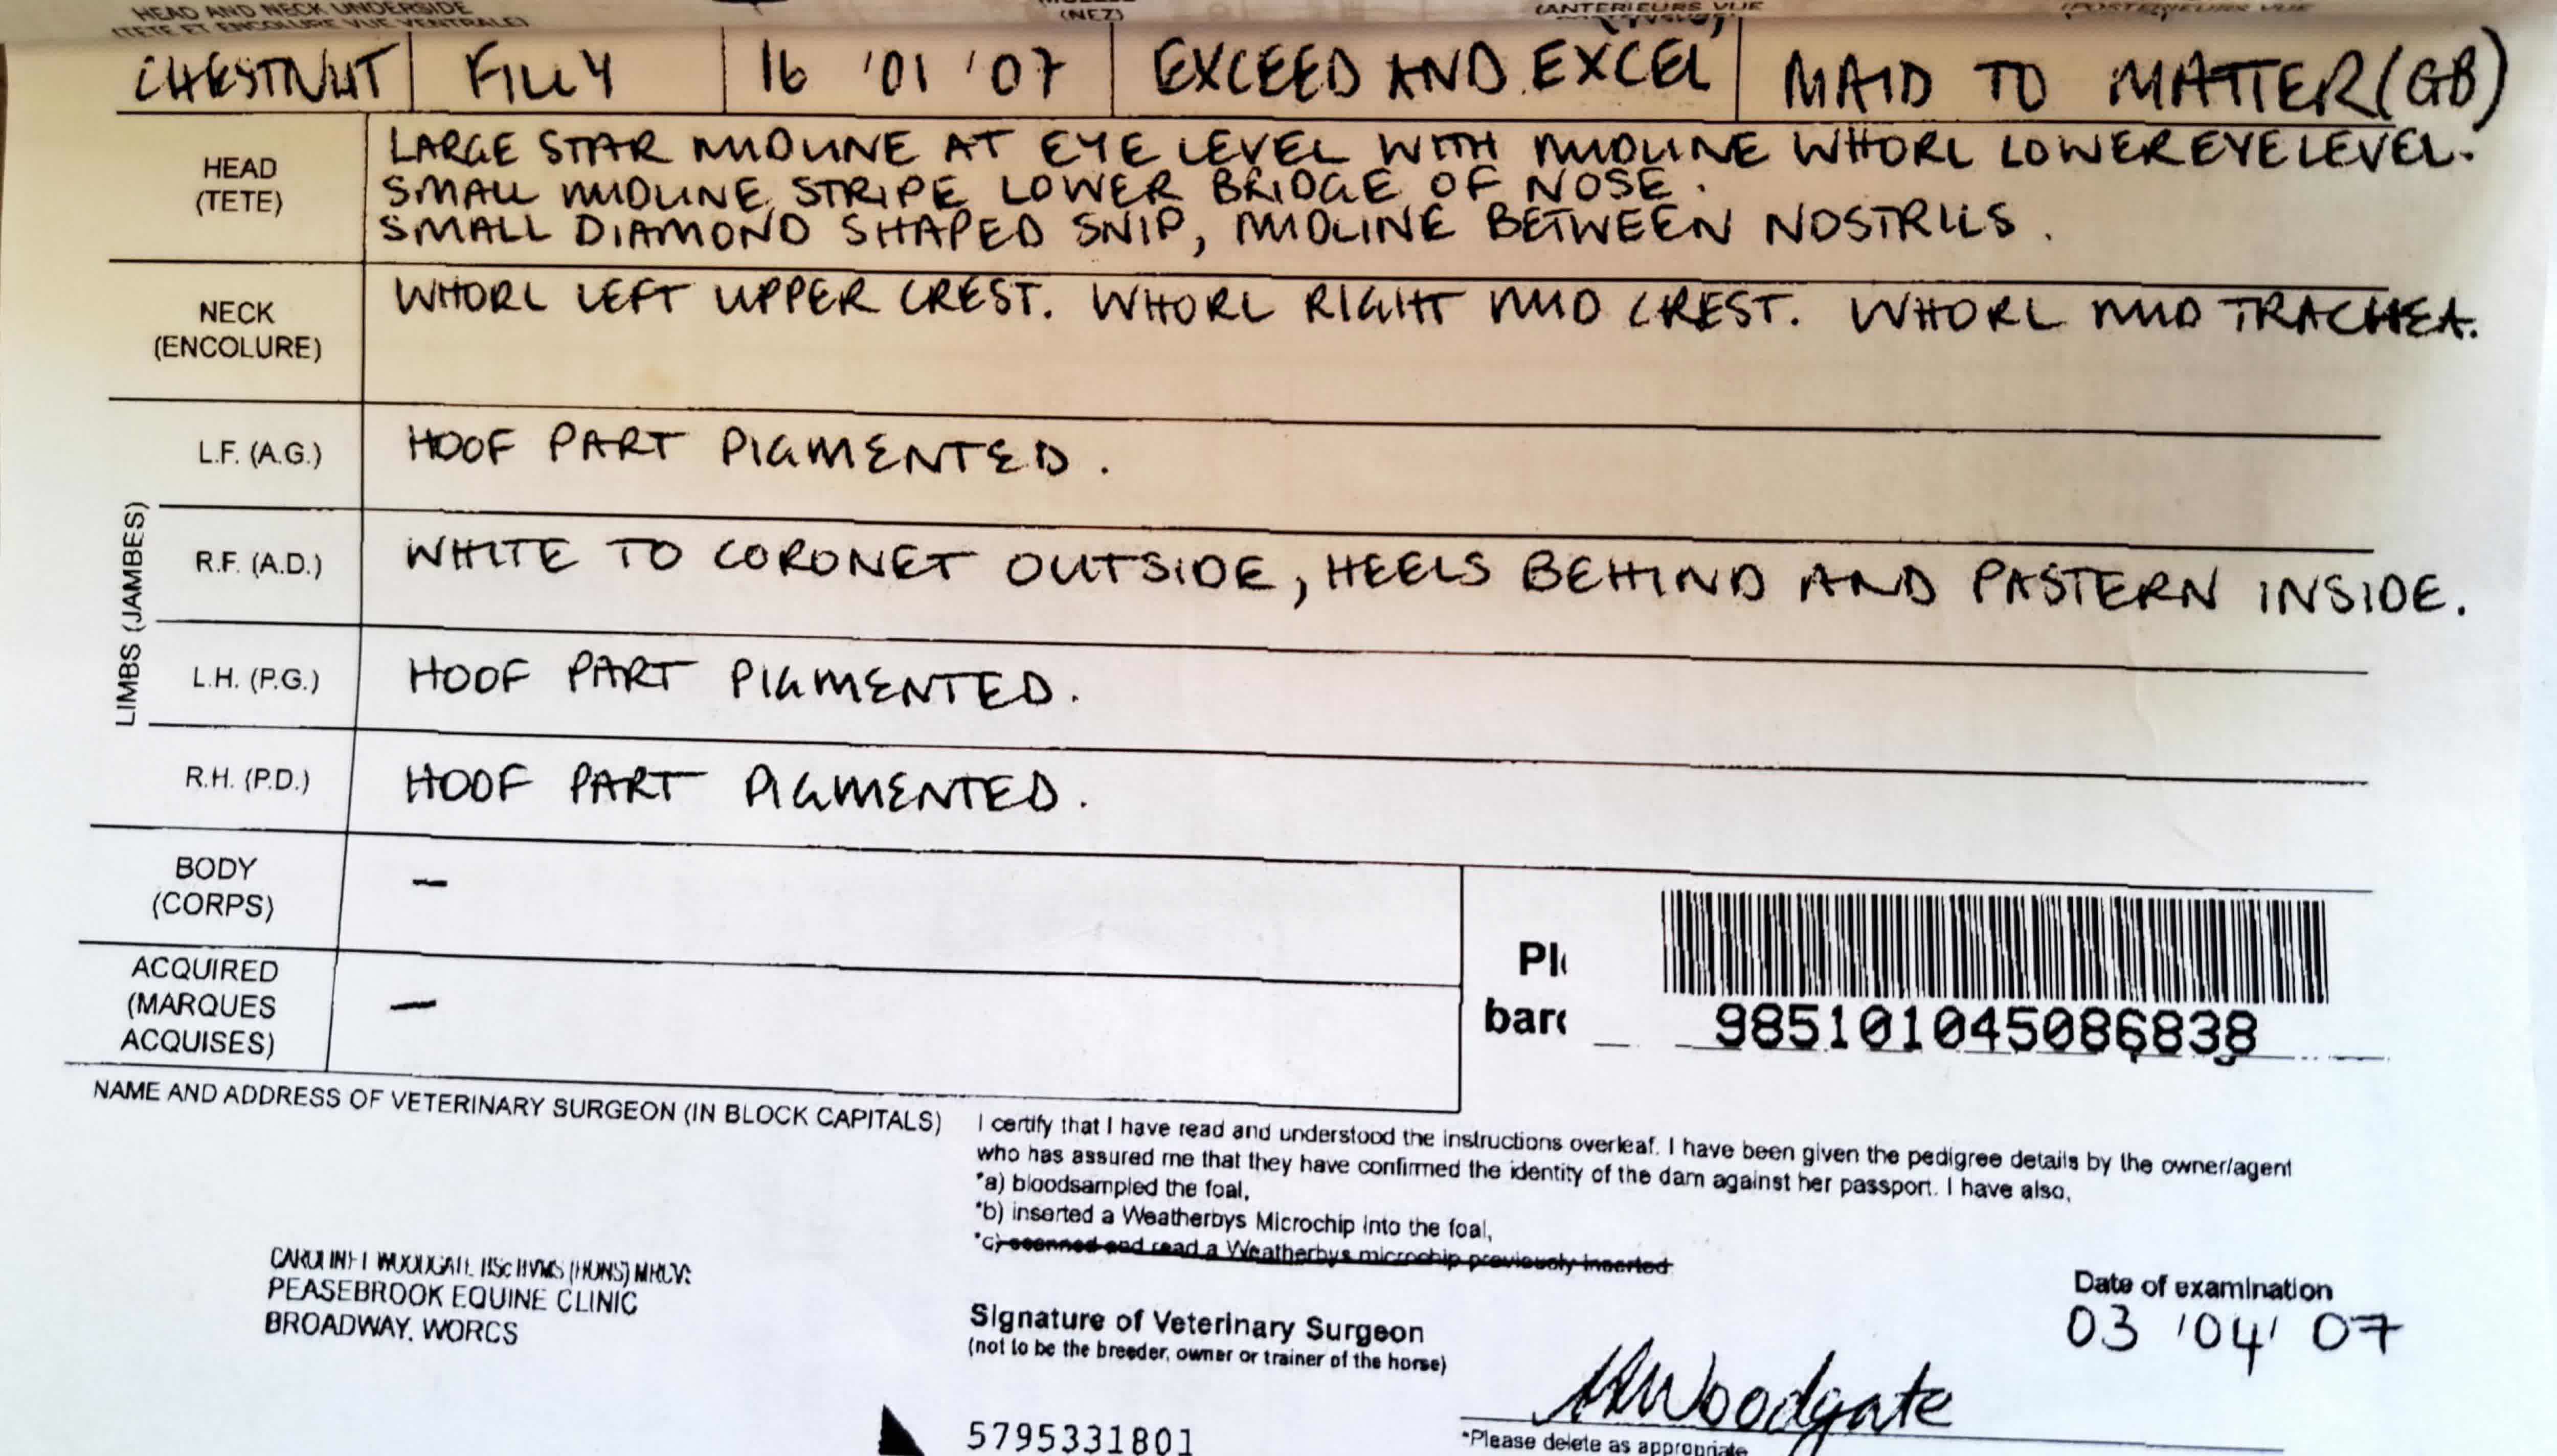 HEAD AND NECK UNDERSIDE
(TETE ET ENCOLURE VUE VENTRALE)
(NEZ)
(ANTERIEURS VUE
(POSTERIEURS VUE
CHESTNUT FILLY 16 '01 '07 EXCEED AND EXCEL MAID TO MATTER (GB)
HEAD
(TETE)
LARGE STAR MIDLINE AT EYE LEVEL WITH MIDLINE WHORL LOWER EYE LEVEL.
SMALL MIDLINE STRIPE LOWER BRIDGE OF NOSE.
SMALL DIAMOND SHAPED SNIP, MIDLINE BETWEEN NOSTRILS.
NECK
(ENCOLURE)
WHORL LEFT UPPER CREST. WHORL RIGHT MID CREST. WHORL MID TRACHEA.
LIMBS (JAMBES)
L.F. (A.G.) HOOF PART PIGMENTED.
R.F. (A.D.) WHITE TO CORONET OUTSIDE, HEELS BEHIND AND PASTERN INSIDE.
L.H. (P.G.) HOOF PART PIGMENTED.
R.H. (P.D.) HOOF PART PIGMENTED.
BODY
(CORPS)
–
ACQUIRED
(MARQUES
ACQUISES)
–
985101045086838
NAME AND ADDRESS OF VETERINARY SURGEON (IN BLOCK CAPITALS)
I certify that I have read and understood the instructions overleaf. I have been given the pedigree details by the owner/agent
who has assured me that they have confirmed the identity of the dam against her passport. I have also,
*a) bloodsampled the foal,
*b) inserted a Weatherbys Microchip into the foal,
*c) scanned and read a Weatherbys microchip previously inserted
WOODGATE BSc BVMS (HONS) MRCVS
PEASEBROOK EQUINE CLINIC
BROADWAY, WORCS
Signature of Veterinary Surgeon
(not to be the breeder, owner or trainer of the horse)
Woodgate
Date of examination
03 '04' 07
5795331801
*Please delete as appropriate